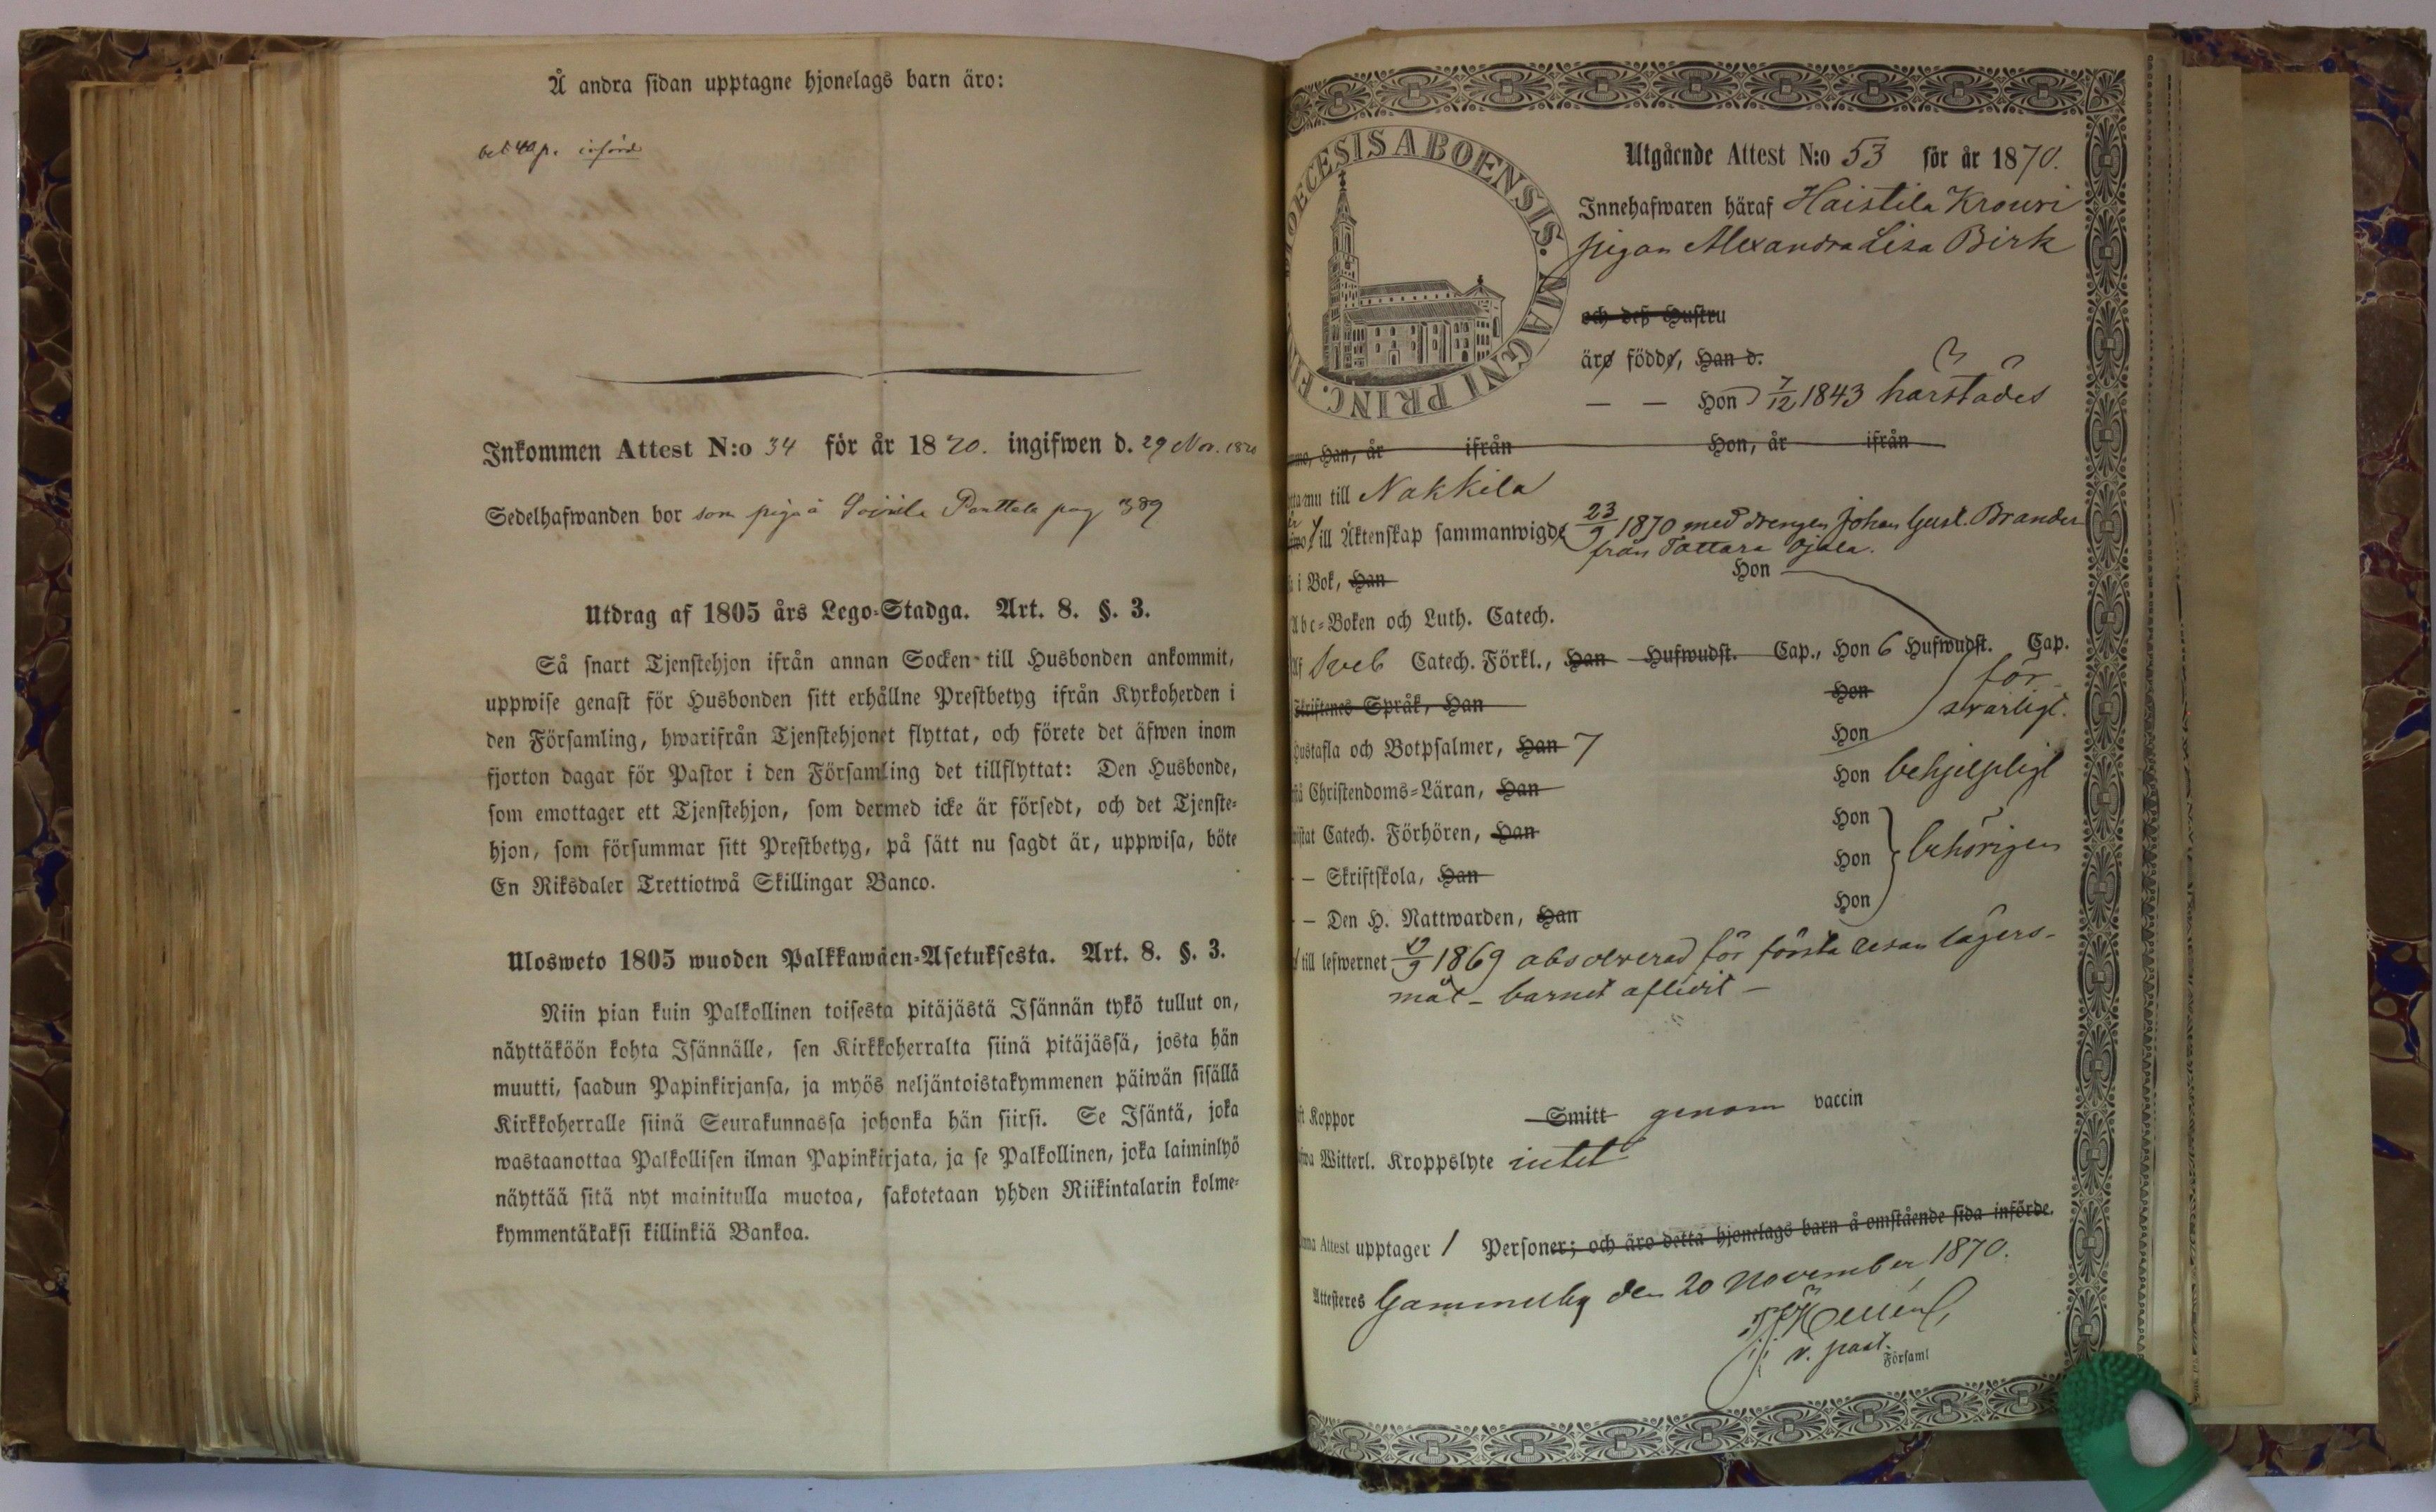 Å andra sidan upptagne hjonelags barn äro:
bet. 40 p. införd
Inkommen Attest N:o 34 för år 1870. ingifwen d. 29 Nov. 1870
Sedelhafwanden bor som piga å Soinila Penttala pag 389
Utdrag af 1805 års Lego-Stadga. Art. 8. §. 3.
Så snart Tjenstehjon ifrån annan Socken till Husbonden ankommit,
uppwise genast för Husbonden sitt erhållne Prestbetyg ifrån Kyrkoherden i
den Församling, hwarifrån Tjenstehjonet flyttat, och förete det äfwen inom
fjorton dagar för Pastor i den Församling det tillflyttat: Den Husbonde,
som emottager ett Tjenstehjon, som dermed icke är försedt, och det Tjenste-
hjon, som försummar sitt Prestbetyg, på sätt nu sagdt är, uppwisa, böte
En Riksdaler Trettiotwå Skillingar Banco.
Ulosweto 1805 wuoden Palkkawäen-Asetuksesta. Art. 8. §. 3.
Niin pian kuin Palkollinen toisesta pitäjästä Isännän tykö tullut on,
näyttäköön kohta Isännälle, sen Kirkkoherralta siinä pitäjässä, josta hän
muutti, saadun Papinkirjansa, ja myös neljäntoistakymmenen päiwän sisällä
Kirkkoherralle siinä Seurakunnassa johonka hän siirsi. Se Isäntä, joka
wastaanottaa Palkollisen ilman Papinkirjata, ja se Palkollinen, joka laiminlyö
näyttää sitä nyt mainitulla muotoa, sakotetaan yhden Riikintalarin kolme-
kymmentäkaksi killinkiä Bankoa.
OECESIS ABOENSIS. MAGNI PRINC. FIN
Utgående Attest N:o 53 för år 1870.
Innehafwaren häraf Haistila Krouvi
pigan Alexandra Lisa Birk
och deß Hustru
äro födde, Han d.
— — Hon d 7/12 1843 härstädes
Han, år ifrån Hon, år ifrån
nu till Nakkila
till Äktenskap sammanwigde 23/9 1870 med drengen Johan Gust. Brander
från Tattara Ojala.
i Bok, Han Hon
Abc-Boken och Luth. Catech.
Sveb Catech. Förkl., Han Hufwudst. Cap., Hon 6 Hufwudst. Cap.
Skriftenes Språk, Han Hon för-
svarligt.
Hustafla och Botpsalmer, Han 7 Hon
Christendoms-Läran, Han Hon behjelpligt
Catech. Förhören, Han Hon
— Skriftskola, Han Hon behörigen
— Den H. Nattwarden, Han Hon
till lefwernet 19/9 1869 absolverad för första resan lägers-
mål - barnet aflidit -
Koppor Smitt genom vaccin
Witterl. Kroppslyte intet
Attest upptager 1 Personer; och äro detta hjonelags barn å omstående sida införde.
Attesteres Gammelby den 20 November 1870.
v. past.
Församl